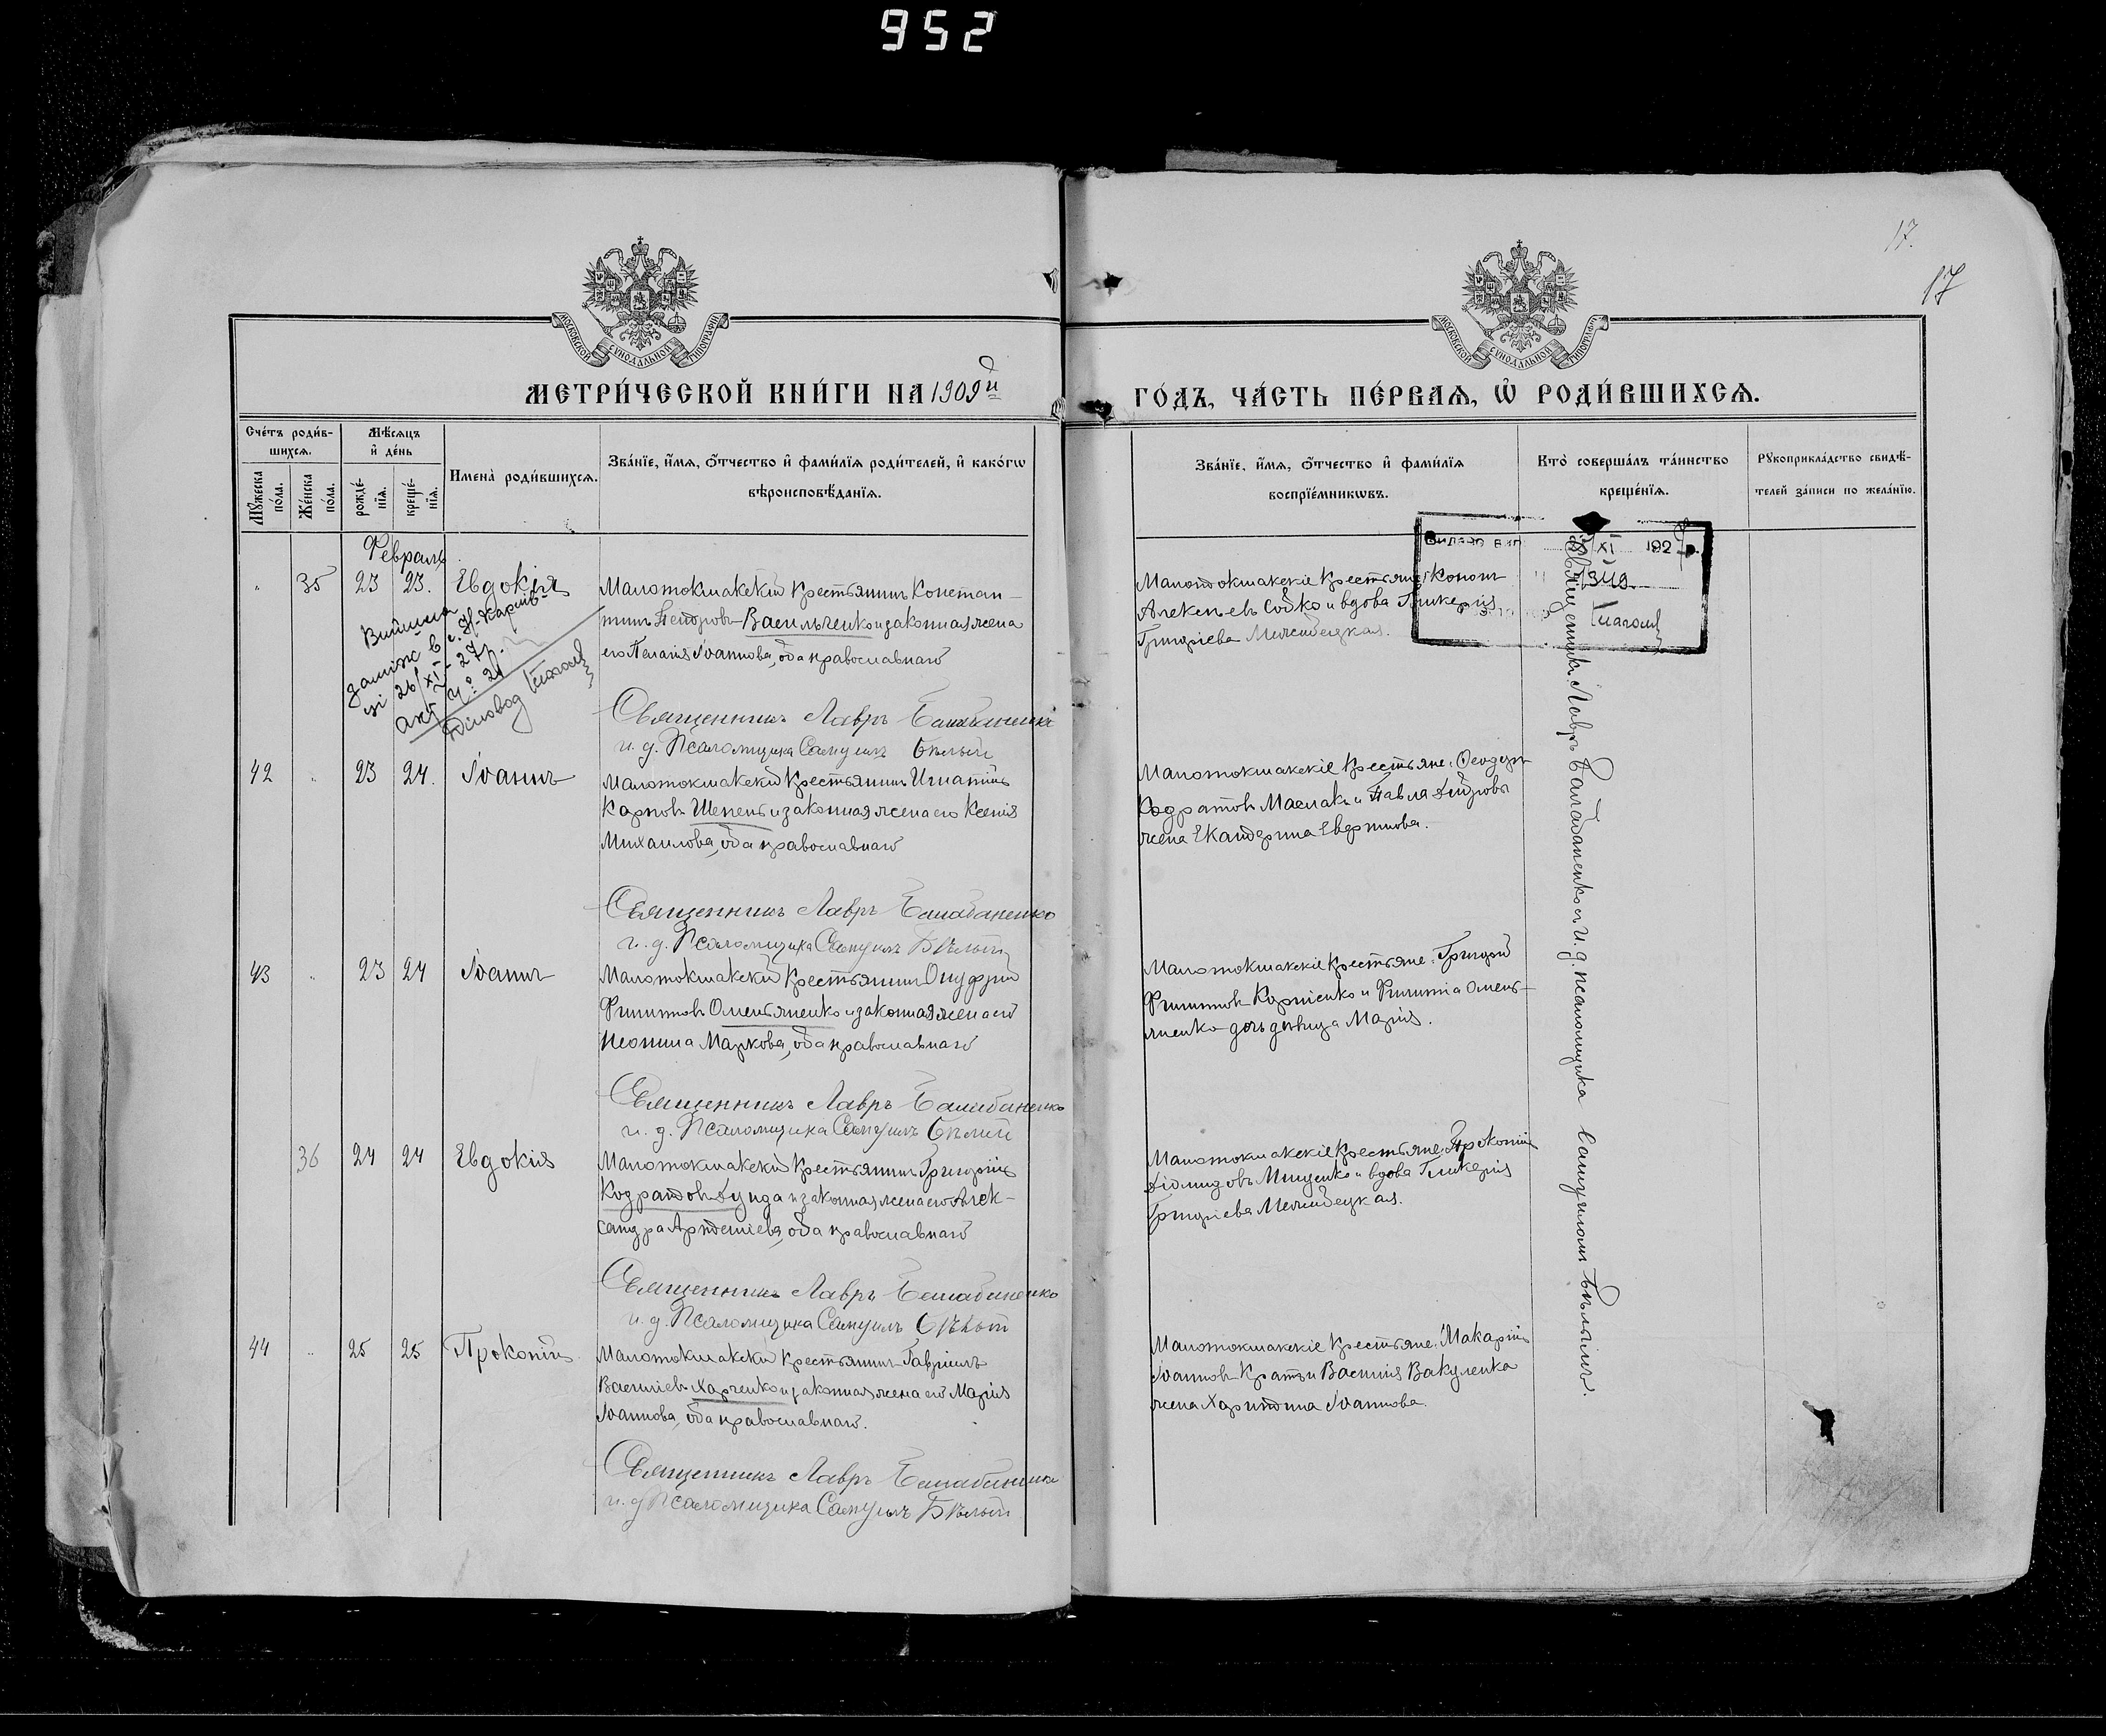 952
17.
17
МОСКОВСКОЙ СѴНОДАЛЬНОЙ ТИПОГРАФІИ
МОСКОВСКОЙ СѴНОДАЛЬНОЙ ТИПОГРАФІИ
МЕТРИ́ЧЕСКОЙ КНИ́ГИ НА 1909й
ГО́ДЪ, ЧА́СТЬ ПЕ́РВАѦ, Ѿ РОДИ́ВШИХСѦ.
Сче́тъ роди́в-
шихсѧ.
Мѣ́сѧцъ
и҆ де́нь
Мꙋ́жеска по́ла.
Же́нска по́ла.
рожде́-
нїѧ.
креще́-
нїѧ.
И҆мена̀ роди́вшихсѧ.
Зва́нїе, и҆́мѧ, ѻ҆́тчество и҆ фами́лїѧ роди́телей, и҆ како́гѡ
вѣроисповѣ́данїѧ.
Зва́нїе, и҆́мѧ, ѻ҆́тчество и҆ фами́лїѧ
воспрїе́мникѡвъ.
Кто̀ соверша́лъ та́инство
креще́нїѧ.
Рꙋкоприкла́дство свидѣ́-
телей за́писи по жела́нїю.
Февраль
35 23 23. Евдокія
Малотокмакскій крестьянинъ Констан-
тинъ Петровъ Васильченко и законная жена
его Пелагія Іоаннова, оба православнаго
Священникъ Лавръ Балабаненко
и. д. Псаломщика Самуилъ Бѣлый
Вийшла
заміж в с.
26/XI-27р.
акт ч: 21
Діловод
Малотокмакскіе крестьяне: Кононъ
Алексѣевъ Сойко и вдова Гликерія
Григоріева Межибецкая.
Видано вип
XI 192
1349
42 23 24. Іоаннъ
Малотокмакскій крестьянинъ Игнатій
Карповъ Шепель и законная жена его Ксенія
Михаилова, оба православнаго
Священникъ Лавръ Балабаненко
и. д. Псаломщика Самуилъ Бѣлый
Малотокмакскіе крестьяне: Ѳеодоръ
Кодратовъ Маслакъ и Павла
жена Екатерина
43 23 24 Іоаннъ
Малотокмакскій крестьянинъ Онуфрій
Филипповъ Омельяненко и законная жена его
Неонила Маркова, оба православнаго
Священникъ Лавръ Балабаненко
и. д. Псаломщика Самуилъ Бѣлый
Малотокмакскіе крестьяне: Григорій
Филипповъ Корніенко и Филиппа Омель-
яненко дочь дѣвица Марія.
36 24 24 Евдокія
Малотокмакскій крестьянинъ Григорій
Кодратовъ Дуида и законная жена его Алек-
сандра Артеміева, оба православнаго
Священникъ Лавръ Балабаненко
и. д. Псаломщика Самуилъ Бѣлый
Малотокмакскіе крестьяне: Прокопій
Діомидовъ Мищенко и вдова Гликерія
Григоріева Межибецкая.
44 25 25 Прокопій
Малотокмакскій крестьянинъ Гавріилъ
Василіевъ Харченко и законная жена его Марія
Іоаннова, оба православнаго.
Священникъ Лавръ Балабаненко
и. д. Псаломщика Самуилъ Бѣлый
Малотокмакскіе крестьяне: Макарій
Іоанновъ Кратъ и Василія Вакуленка
жена Харитина Іоаннова.
Священникъ Лавръ Балабаненко и и. д. псаломщика Самуиломъ Бѣлымъ.